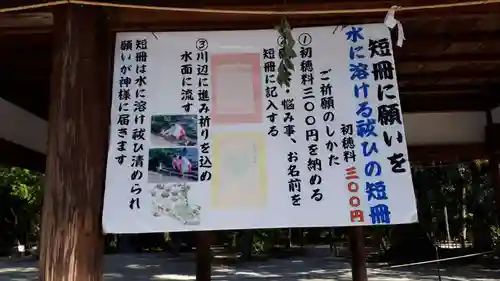 短冊に願いを
水に溶ける祓ひの短冊
初穂料 三〇〇円
ご祈願のしかた
①初穂料三〇〇円を納める
悩み事、お名前を
短冊に記入する
③川辺に進み祈りを込め
水面に流す
短冊は水に溶け祓い清められ
願いが神様に届きます